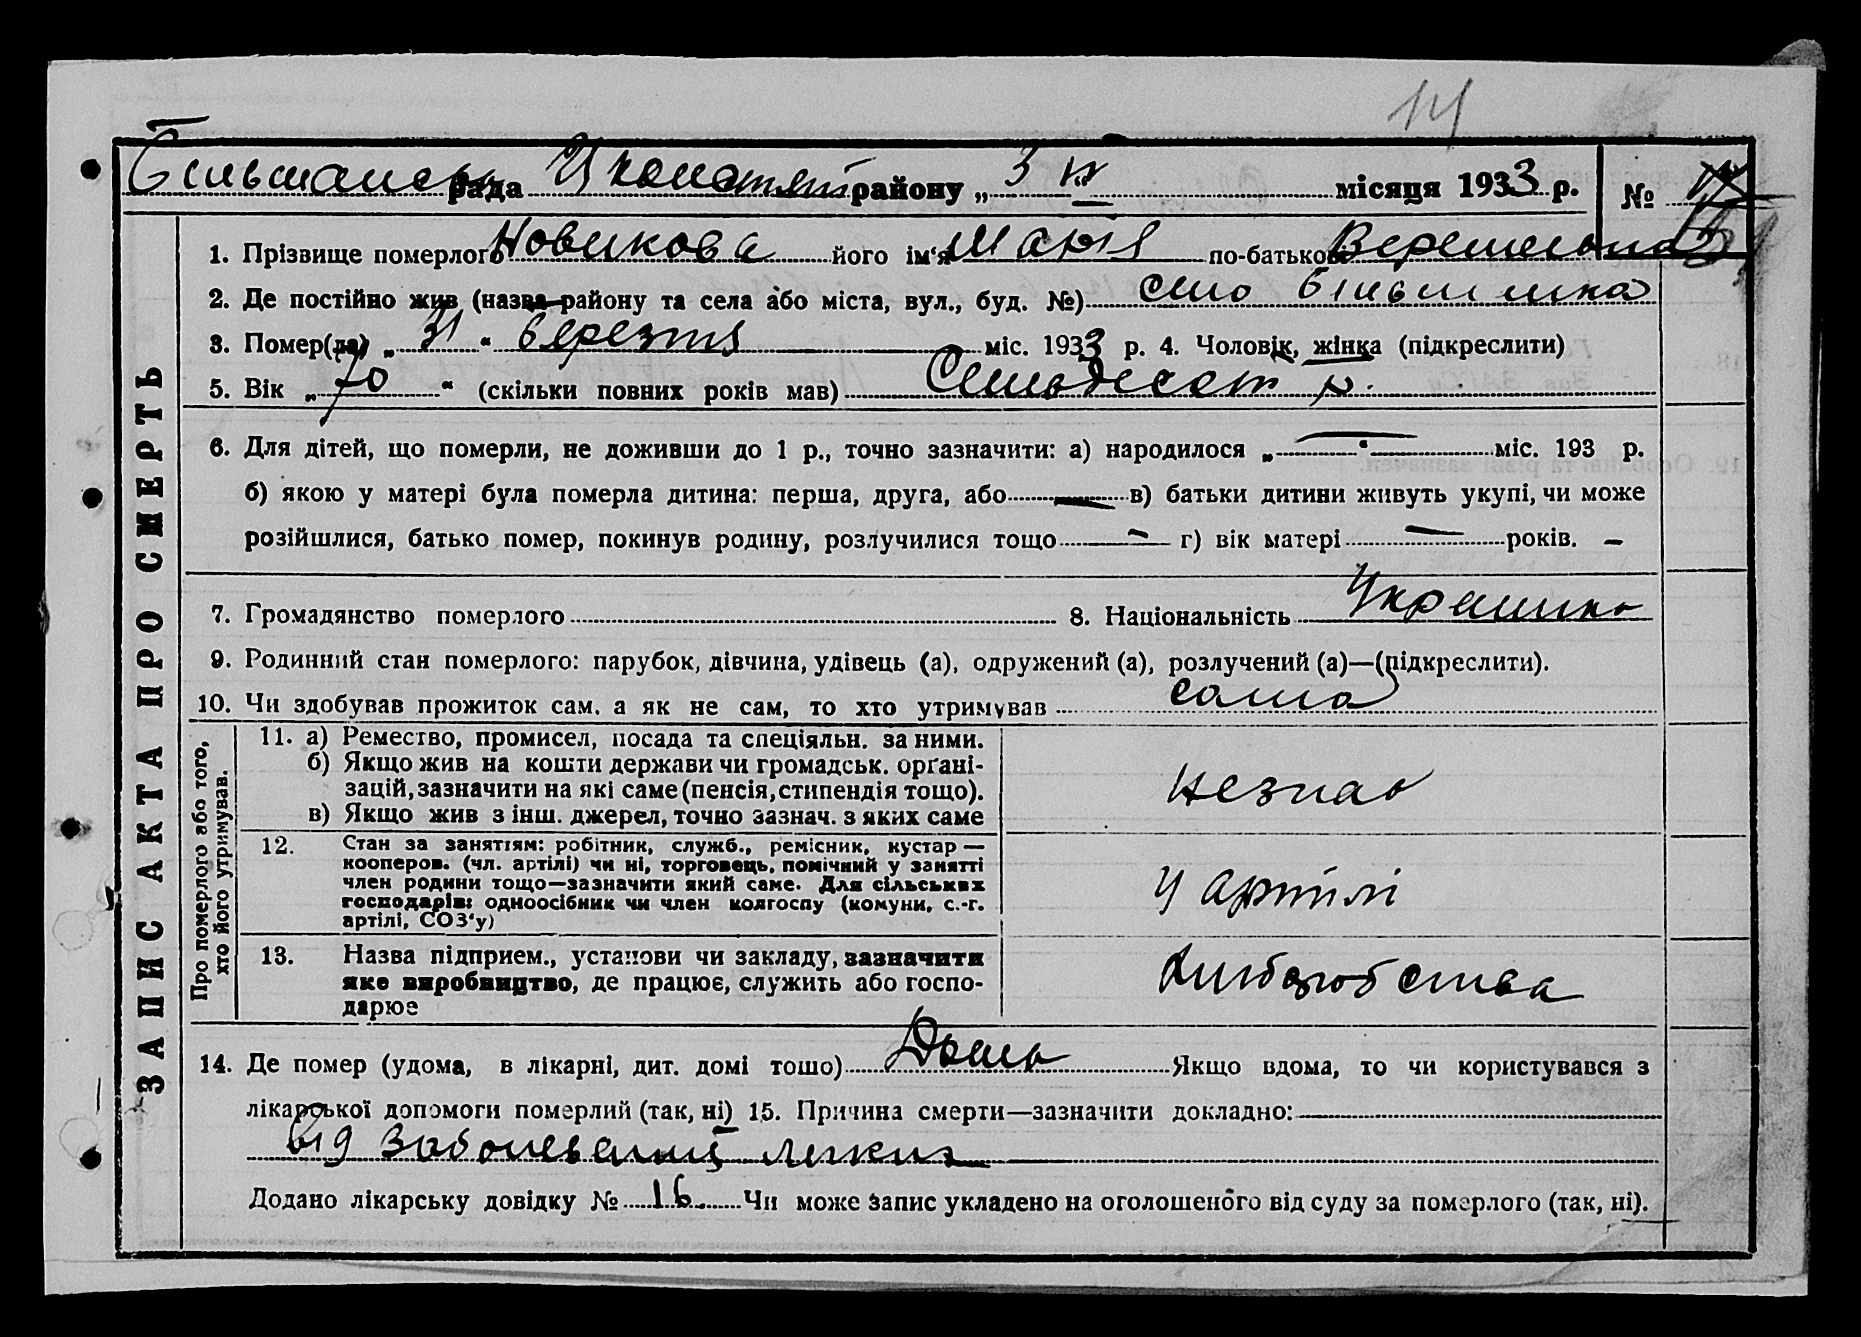 14
рада району „ 3 " місяця 1933 р. №
1. Прізвище померлого Новикова його ім'я Марія по-батькові
2. Де постійно жив (назва району та села або міста, вул., буд. №) село Більшишка
3. Помер(ла) „ 31 " березня міс. 1933 р. 4. Чоловік, жінка (підкреслити)
5. Вік „ 70 " (скільки повних років мав) Семьдесат р.
6. Для дітей, що померли, не доживши до 1 р., точно зазначити: а) народилося „ — " міс. 193 р.
б) якою у матері була померла дитина: перша, друга, або — в) батьки дитини живуть укупі, чи може
розійшлися, батько помер, покинув родину, розлучилися тощо — г) вік матері — років. —
7. Громадянство померлого 8. Національність Украинка
9. Родинний стан померлого: парубок, дівчина, удівець (а), одружений (а), розлучений (а)—(підкреслити).
10. Чи здобував прожиток сам, а як не сам, то хто утримував сама
ЗАПИС АКТА ПРО СМЕРТЬ
Про померлого або того,
хто його утримував.
11. а) Ремество, промисел, посада та спеціяльн. за ними.
б) Якщо жив на кошти держави чи громадськ. орґані-
зацій, зазначити на які саме (пенсія, стипендія тощо).
в) Якщо жив з інш. джерел, точно зазнач. з яких саме
незнаю
12. Стан за заняттям: робітник, служб., ремісник, кустар —
кооперов. (чл. артілі) чи ні, торговець, помічний у занятті
член родини тощо—зазначити який саме. Для сільських
господарів: одноосібник чи член колгоспу (комуни, с.-г.
артілі, СОЗ'у)
у артілі
13. Назва підприєм., установи чи закладу, зазначити
яке виробництво, де працює, служить або госпо-
дарює
14. Де помер (удома, в лікарні, дит. домі тощо) Дома Якщо вдома, то чи користувався з
лікарської допомоги померлий (так, ні) 15. Причина смерти—зазначити докладно:
від заболеваний легких
Додано лікарську довідку № 16 Чи може запис укладено на оголошеного від суду за померлого (так, ні).